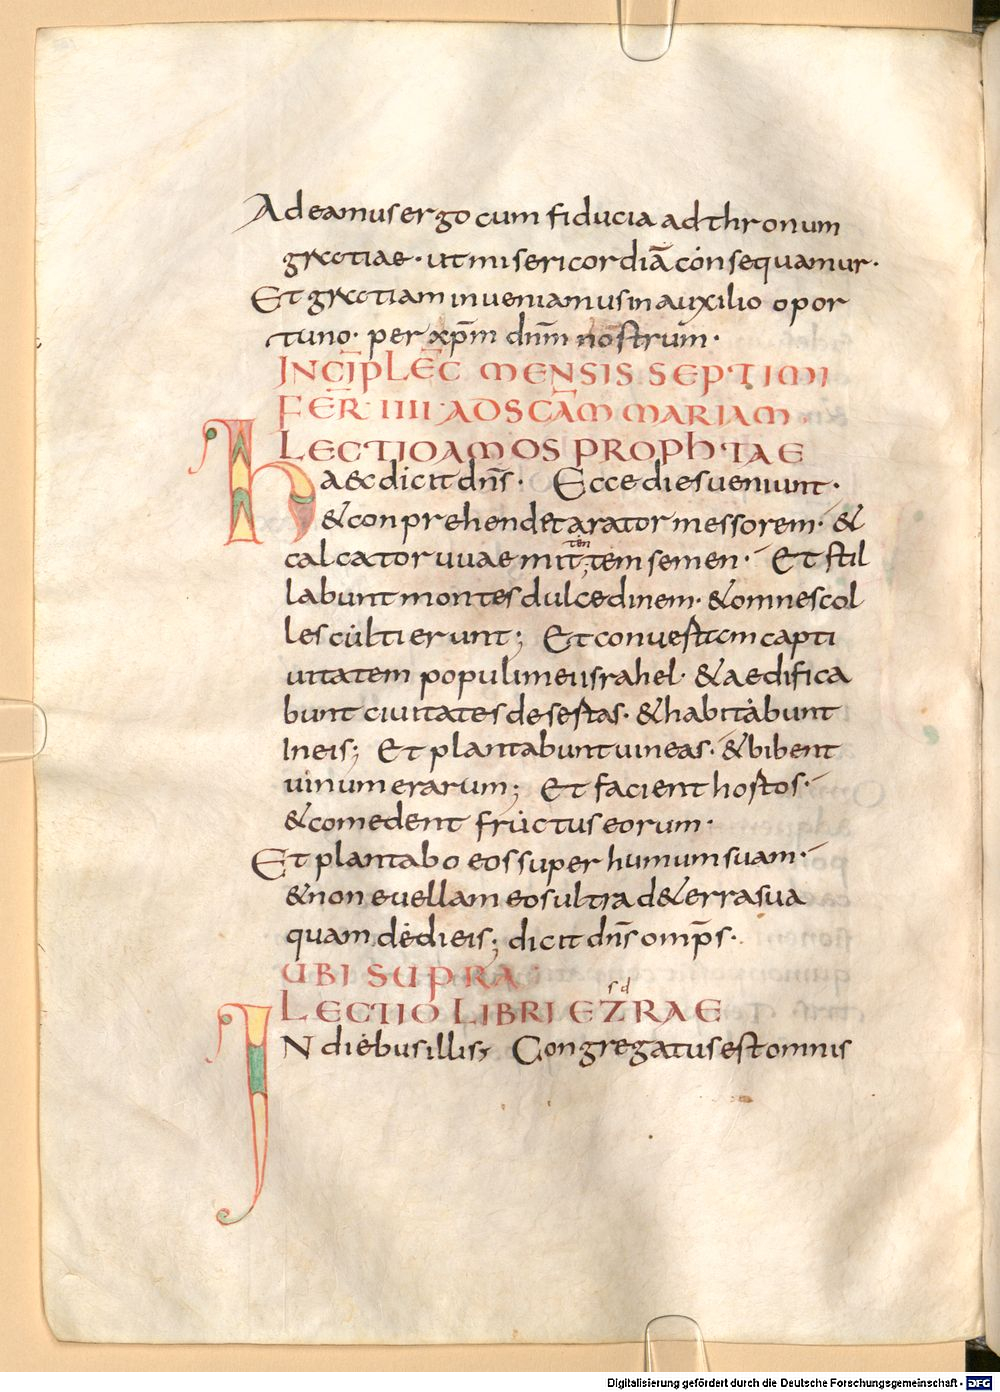 Adeamus ergo cum fiducia ad thronum
gratiae· ut misericordiā consequamur·
Et gratiam inueniamus in auxilio opor
tuno· per xp̄m dn̄m nostrum·
INCĪP LĒC MENSIS SEPTIMI
FĒR· IIII· AD SC̄AM MARIAM·
LECTIO AMOS PROPHTAE
haec dicit dn̄s· Ecce dies ueniunt·
& conprehendet arator messorem· &
calcator uuae mittentem semen· Et stil
labunt montes dulcedinem· & omnes col
les culti erunt; Et conuertam capti
uitatem populi mei israhel· & aedifica
bunt ciuitates desertas· & habitabunt
In eis; Et plantabunt uineas· & bibent
uinum erarum; Et facient hortos·
& comedent fructus eorum·
Et plantabo eos super humum suam·
& non euellam eos ultra de terra sua
quam dedi eis; dicit dn̄s omp̄s·
UBI SUPRA·
sd
LECTIO LIBRI EZRAE
IN diebus illis; Congregatus est omnis
Digitalisierung gefördert durch die Deutsche Forschungsgemeinschaft - DFG